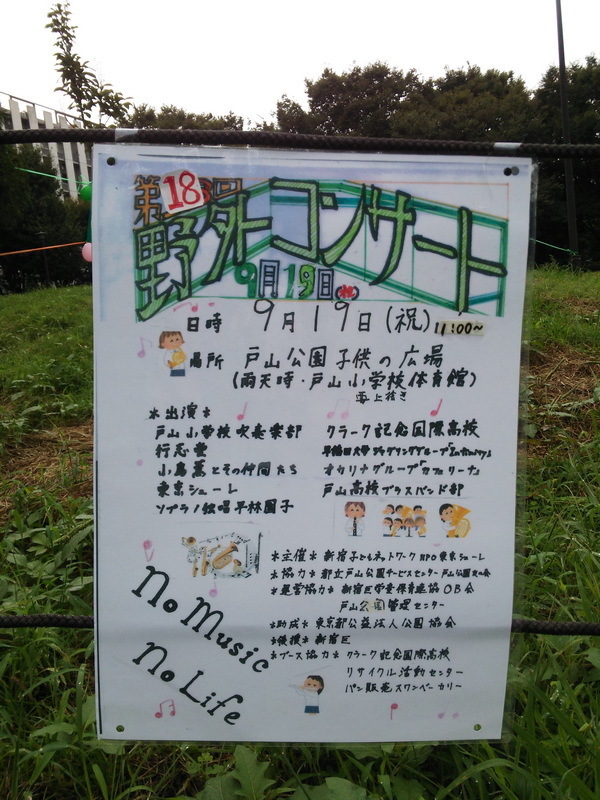 第18回
野外コンサート
9月19日(祝)
日時 9月19日(祝) 11:00~
場所 戸山公園子供の広場
(雨天時・戸山小学校体育館)
*出演*
戸山小学校吹奏楽部
行志堂
小鳥薫とその仲間たち
東京シューレ
ソプラノ独唱平林園子
クラーク記念国際高校
オカリナグループ「カフェリーナ」
戸山高校ブラスバンド部
*主催* 新宿子どもネットワーク NPO東京シューレ
*協力* 都立戸山公園サービスセンター
*運営協力* 新宿区学童保育連協OB会
戸山公園管理センター
*助成* 東京都公益法人公園協会
*後援* 新宿区
*ブース協力* クラーク記念国際高校
リサイクル活動センター
パン販売スワンベーカリー
No Music
No Life